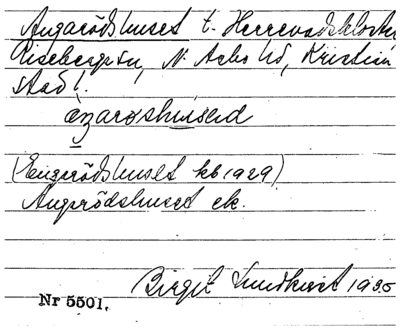 Augarödshuset t. Herrevadskloster
Riseberga sn, N. Åsbo hd, Kristian
stad l.
àgarøshuseð
(Eugerödshuset kb 1929)
Augerödshuset ek.
Birgit Lundkvist 1935
Nr 5501.